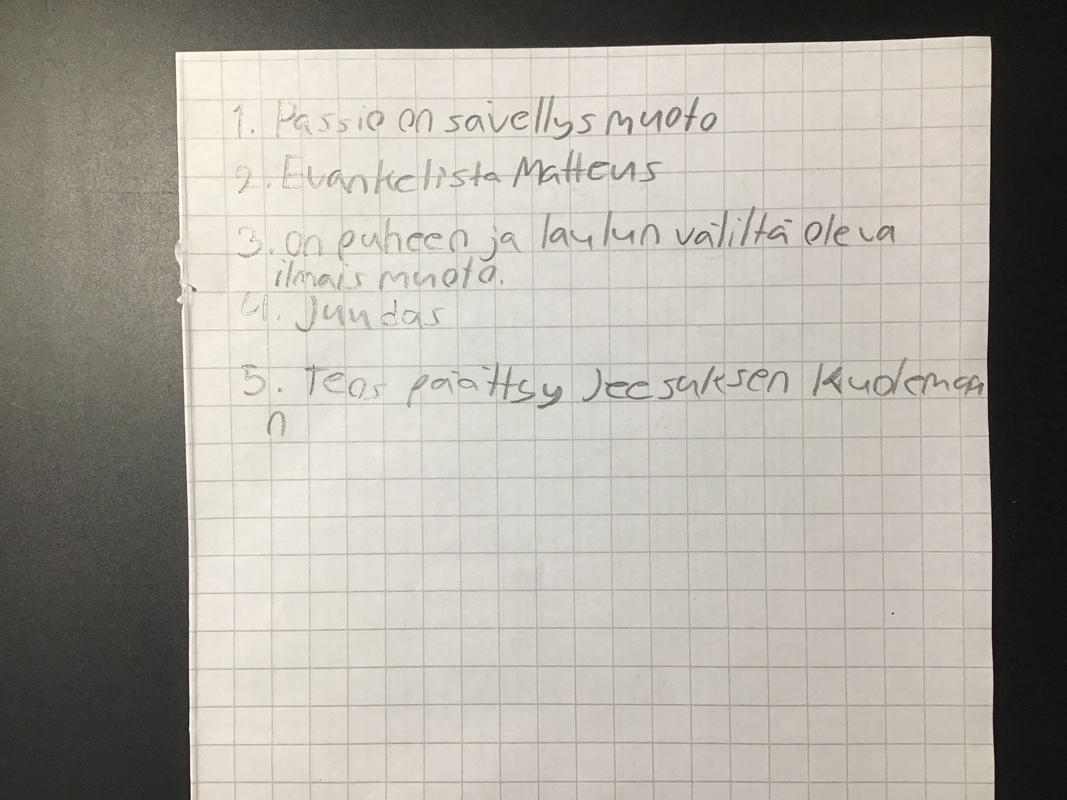 1. Passio on sävellys muoto
2. Evankelista Matteus
3. on puheen ja laulun väliltä oleva
ilmais muoto.
4. Juudas
5. Teos päättsy Jeesuksen kudeman
n